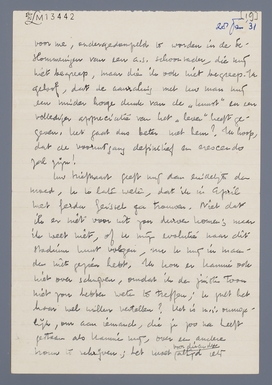 M13442
[19]
20 Jan 31
voor me, ondergedompeld te worden in de be-
kommeringen van een a.s. schoonvader, die mij
niet begreep, maar dien ik ook niet begreep. Ik
geloof, dat de aanraking met uw man mij
een minder hooge dunk van de "kunst" en een
vollediger appreciatie van het "leven" heeft ge-
geven. Het gaat dus beter met hem? Ik hoop,
dat de vooruitgang definitief en crescendo
zal zijn!
Uw briefkaart geeft mij dan eindelijk den
moed, je te laten weten, dat ik in April
met Gerda Geissel ga trouwen. Niet dat
ik er niet voor uit zou durven komen; maar
ik weet niet, of je mijn evolutie naar dit
stadium kunt volgen, nu je mij in maan-
den niet gezien hebt. Ik kon er Mannie ook
niet over schrijven, omdat ik de juiste toon
niet zou hebben weten te treffen; je hebt het
hem wel willen vertellen? Het is m.i. onmoge-
lijk, om aan iemand, die je zoo na heeft
gestaan als Mannie mij, over een andere
vrouw te schrijven; het moet altijd iets